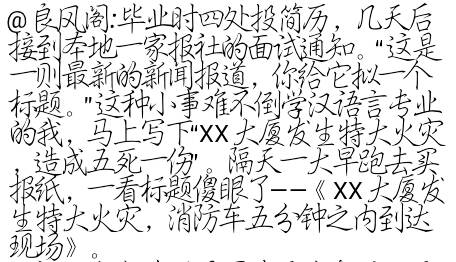 @良风阁:毕业时四处投简历，几天后
接到本地一家报社的面试通知。“这是
一则最新的新闻报道，你给它拟一个
标题。”这种小事难不倒学汉语言专业
的我，马上写下“XX大厦发生特大火灾
，造成五死一伤”。隔天一大早跑去买
报纸，一看标题傻眼了——《XX大厦发
生特大火灾，消防车五分钟之内到达
现场》。